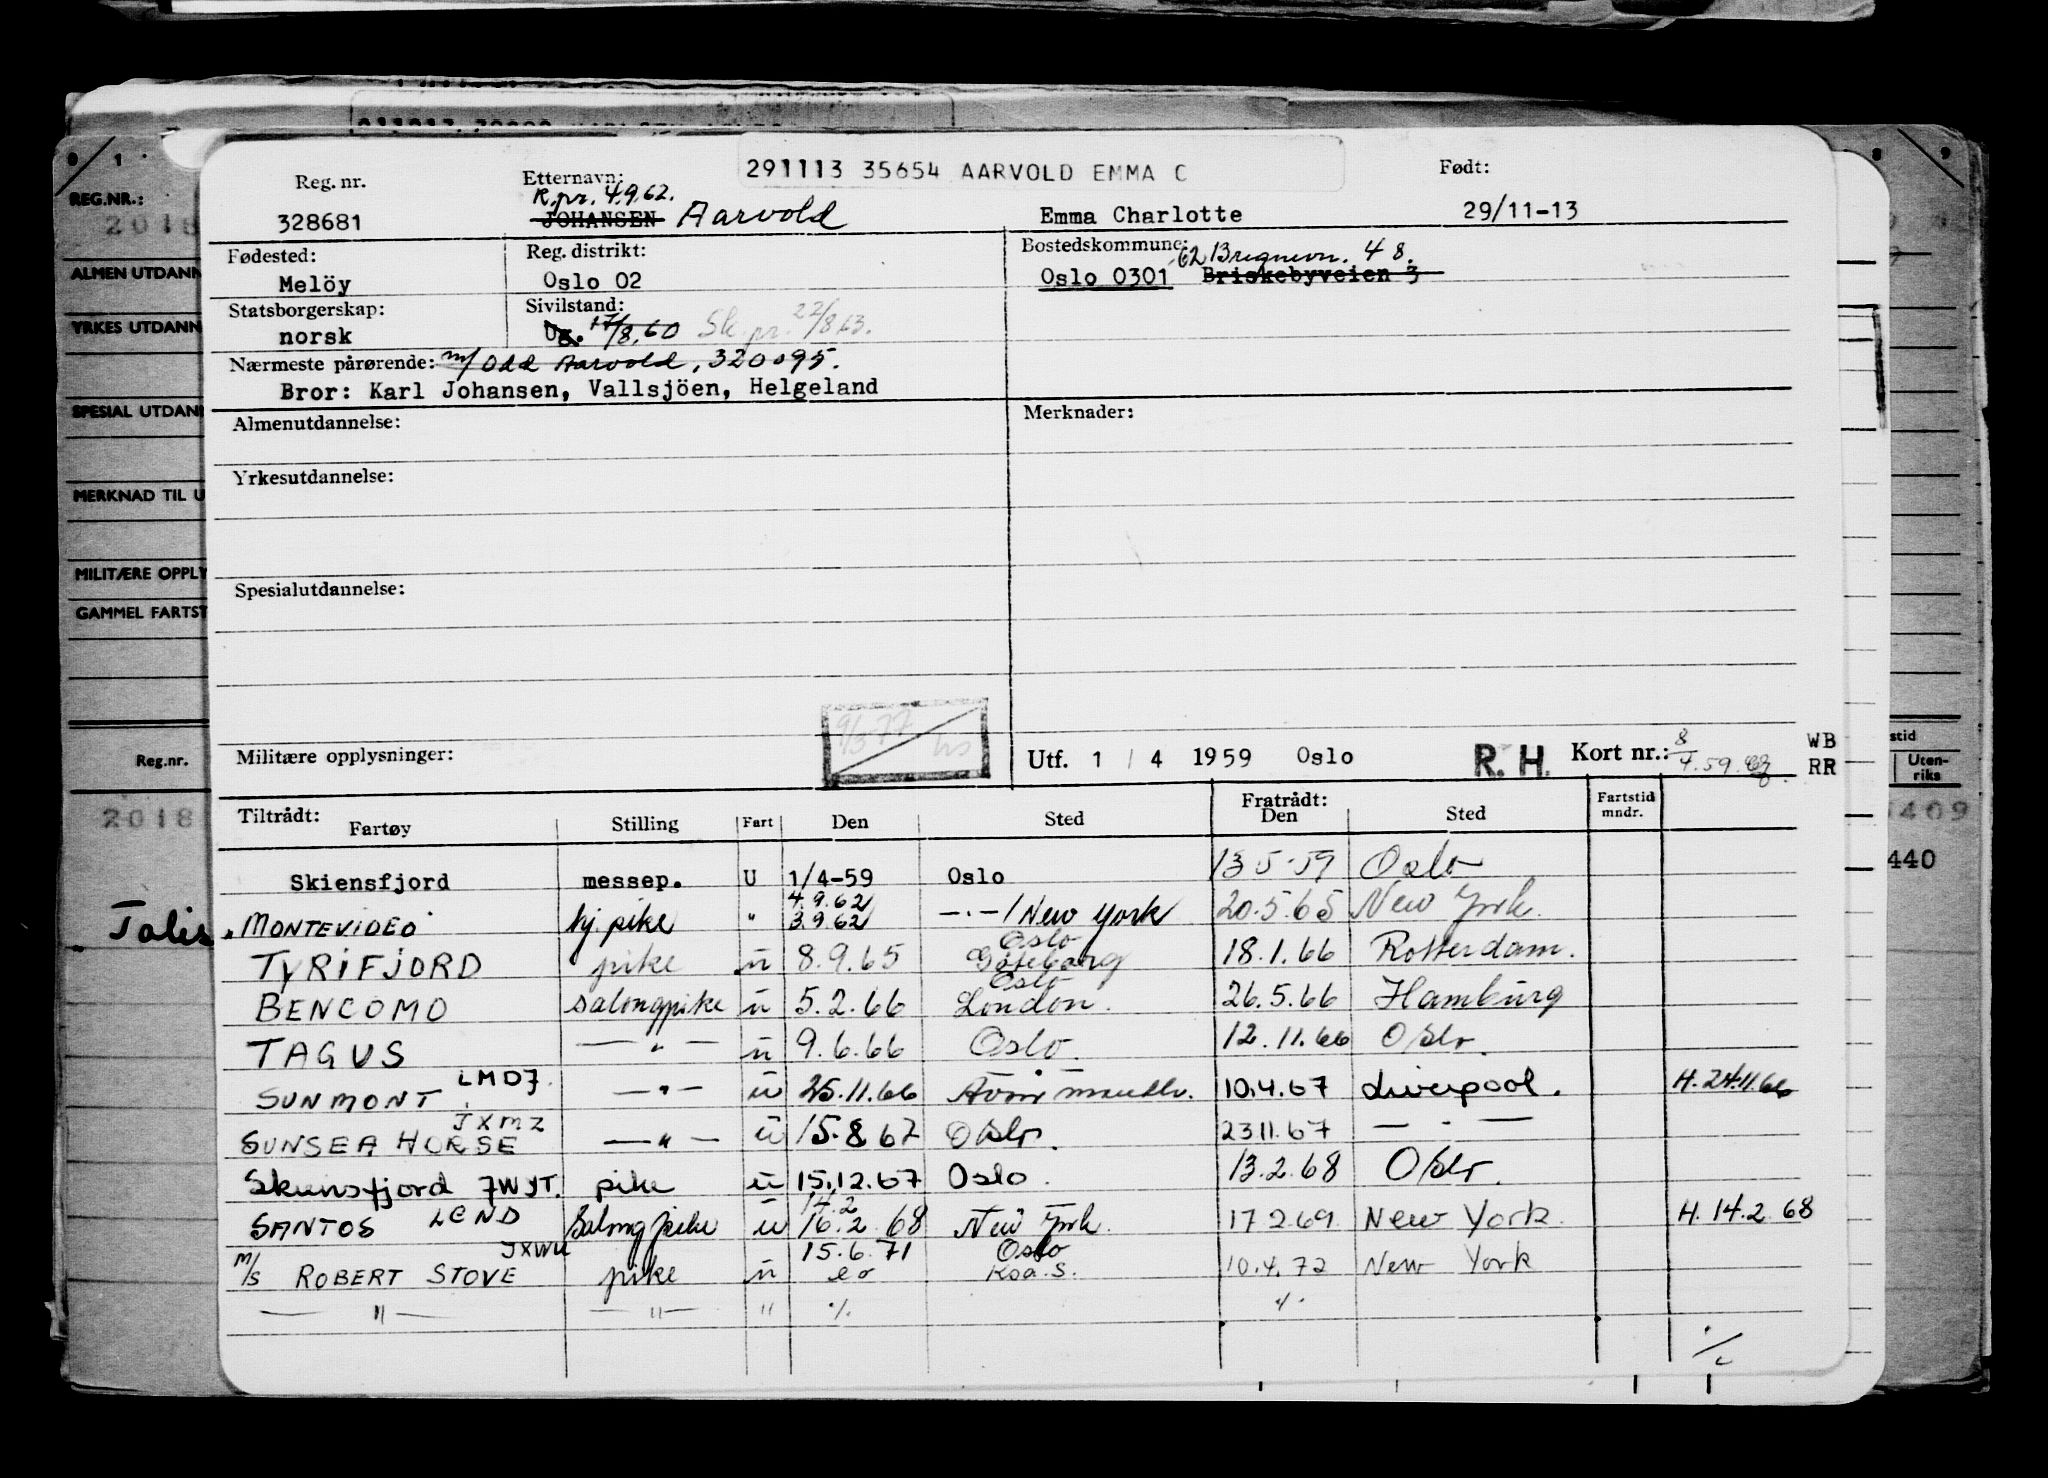 291113 35654 AARVOLD EMMA C
Reg. nr. Etternavn: Født:
R.pr. 4.9.62.
328681 JOHANSEN Aarvold Emma Charlotte 29/11-13
Fødested: Reg. distrikt: Bostedskommune:
Melöy Oslo 02 Oslo 0301 Briskebyveien 3
62 48.
Statsborgerskap: Sivilstand:
norsk Ug. 17/8.60 Sk. pr. 22/8 63.
Nærmeste pårørende: m/Odd Aarvold, 320095.
Bror: Karl Johansen, Vallsjöen, Helgeland
Almenutdannelse: Merknader:
Yrkesutdannelse:
Spesialutdannelse:
9/3 77
Militære opplysninger: Utf. 1 / 4 1959 Oslo R. H. Kort nr.: 8
WB
RR
Tiltrådt: Fratrådt: Fartstid
Fartøy Stilling Fart Den Sted Den Sted mndr.
Skiensfjord messep. U 1/4-59 Oslo 13 5-59 Oslo
4.9.62
MONTEVIDEO kj. pike " 3.9.62 —·—/New York 20.5.65 New York.
Oslo
TYRIFJORD pike u 8.9.65 Göteborg 18.1.66 Rotterdam.
Oslo
BENCOMO salongpike u 5.2.66 London. 26.5.66 Hamburg
TAGUS —"— u 9.6.66 Oslo. 12.11.66 Oslo.
SUNMONT LMDJ. —"— u 25.11.66 10.4.67 Liverpool. H. 24.11.66
SUNSEA HORSE JXMZ —"— u 15.8.67 Oslo. 23 11.67 — - —
Skiensfjord JWJT. pike u 15.12.67 Oslo. 13.2.68 Oslo.
14.2
SANTOS LEND Salongpike u 16.2.68 New York. 17 2 69. New York. H. 14.2.68
JXWU 15.6.71 Oslo
M/S ROBERT STOVE pike u eo Koa. S. 10.4.72 New York
—"— —"— " ./. ./.
./.
REG.NR.:
2018
ALMEN UTDANN
YRKES UTDANN
SPESIAL UTDANN
MERKNAD TIL U
MILITÆRE OPPLY
GAMMEL FARTST
Reg.nr.
2018
Talis
stid
Uten-
riks
409
440